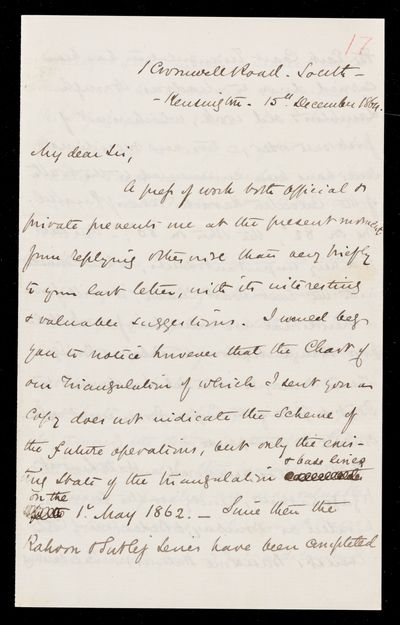 17
1 Cromwell Road. South -
- Kensington. 15th December 1864.
My dear Sir,
A press of work both official &
private prevents me at the present moment
from replying otherwise than very briefly
to your last letter, with its interesting
& valuable suggestions. I would beg
you to notice however that the Chart of
our Triangulation of which I sent you a
Copy does not indicate the Scheme of
the future operations, but only the exis-
ting State of the triangulation & base lines
on the
1st May 1862. - Since then the
Rahoon & Sutlej Series have been completed